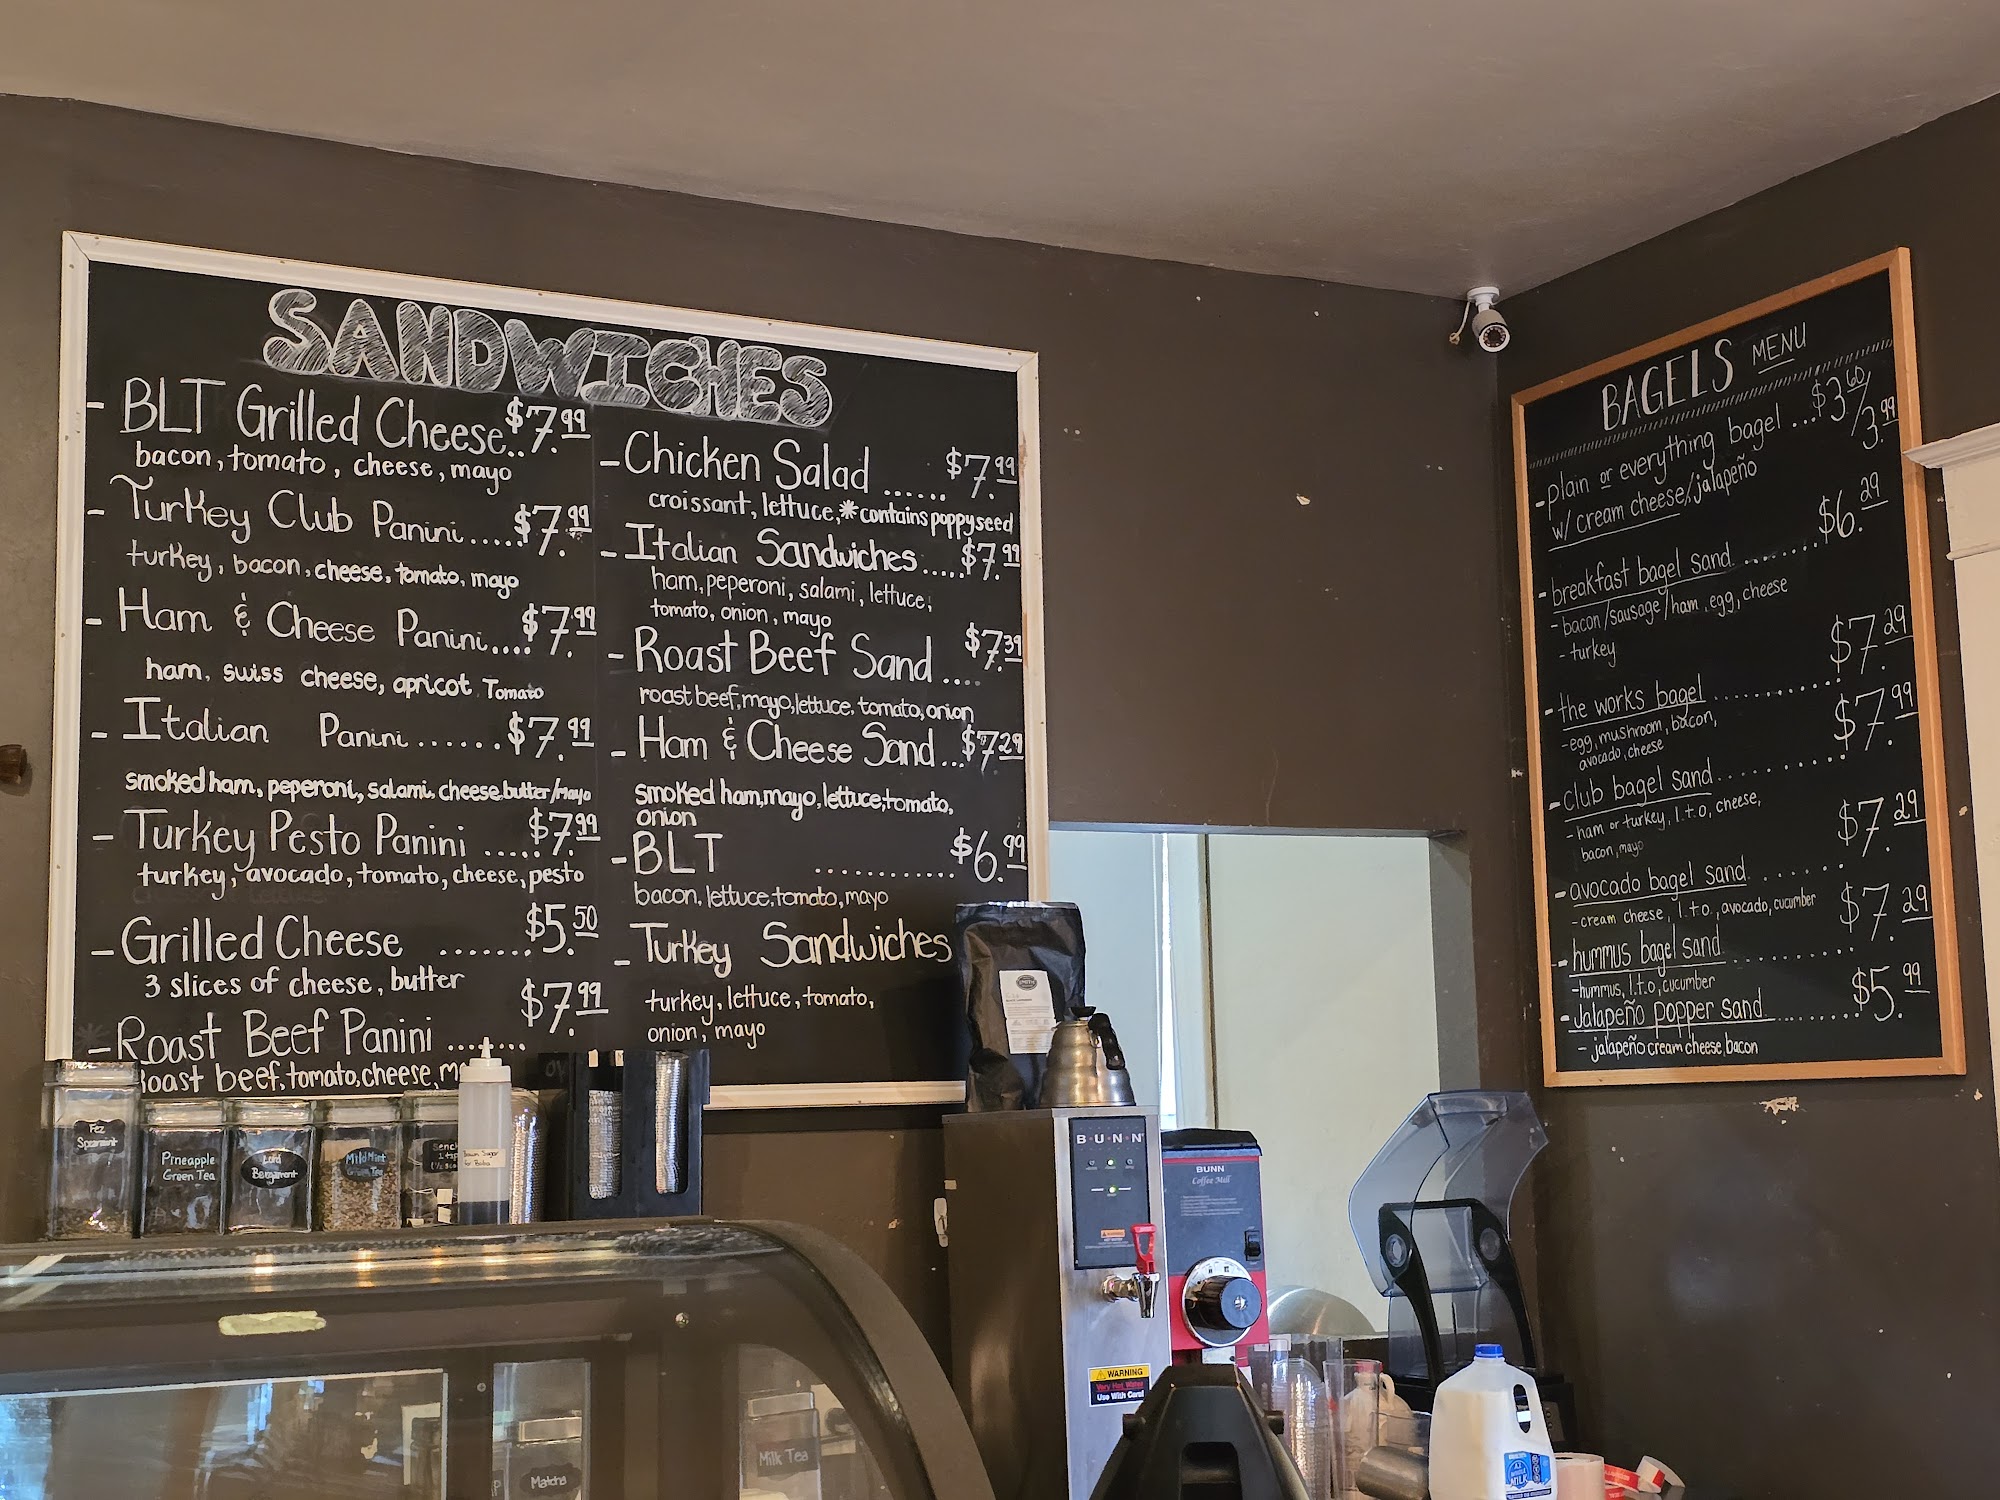 SANDWICHES
- BLT Grilled Cheese.. $7.99
bacon, tomato, cheese, mayo
- Turkey Club Panini..... $7.99
turkey, bacon, cheese, tomato, mayo
- Ham & Cheese Panini.... $7.99
ham, swiss cheese, apricot Tomato
- Italian Panini ...... $7.99
smoked ham, peperoni, salami, cheese, butter/mayo
- Turkey Pesto Panini ..... $7.99
turkey, avocado, tomato, cheese, pesto
- Grilled Cheese ....... $5.50
3 slices of cheese, butter
- Roast Beef Panini ........ $7.99
Roast beef, tomato, cheese,
- Chicken Salad ...... $7.99
croissant, lettuce, *contains poppyseed
- Italian Sandwiches..... $7.99
ham, peperoni, salami, lettuce,
tomato, onion, mayo
- Roast Beef Sand .... $7.39
roast beef, mayo, lettuce, tomato, onion
- Ham & Cheese Sand... $7.29
smoked ham, mayo, lettuce, tomato,
onion
- BLT ............ $6.99
bacon, lettuce, tomato, mayo
- Turkey Sandwiches
turkey, lettuce, tomato,
onion, mayo
BAGELS MENU
- plain or everything bagel ... $3.60/3.99
w/ cream cheese/jalapeño
- breakfast bagel sand ........ $6.29
- bacon/sausage/ham, egg, cheese
- turkey
- the works bagel ............ $7.29
- egg, mushroom, bacon,
avocado, cheese
- club bagel sand .......... $7.99
- ham or turkey, l.t.o, cheese,
bacon, mayo
- avocado bagel sand ...... $7.29
- cream cheese, l.t.o, avocado, cucumber
- hummus bagel sand .......... $7.29
- hummus, l.t.o, cucumber
- Jalapeño popper sand ......... $5.99
- jalapeño cream cheese, bacon
Fez
Spearmint
Pineapple
Green Tea
Lord
Bergamont
Mild Mint
Green Tea
Brown Sugar
for Boba
BUNN
BUNN
Coffee Mill
WARNING
Very Hot Water
Use With Care!
Matcha
Milk Tea
MILK